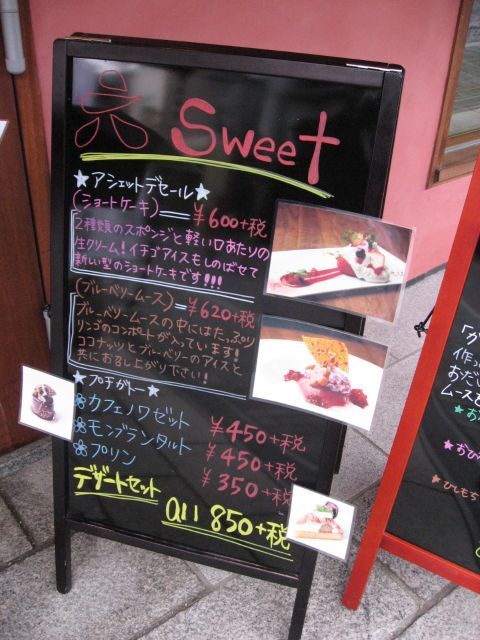 Sweet
★アシェットデセール★
(ショートケーキ)＝¥600+税
2種類のスポンジと軽い口あたりの
生クリーム!イチゴアイスものばせて
新しい型のショートケーキです!!!
(ブルーベリームース)＝¥620+税
ブルーベリームースの中にはたっぷり
リンゴのコンポートが入っています!
ココナッツとブルーベリーのアイスと
共にお召し上がり下さい!
★プチガトー★
カフェノワゼット ¥450+税
モンブランタルト ¥450+税
プリン ¥350+税
デザートセット
all 850+税
「グ
作っ
おだい
ムースを
★お
★おび
★ひしもち